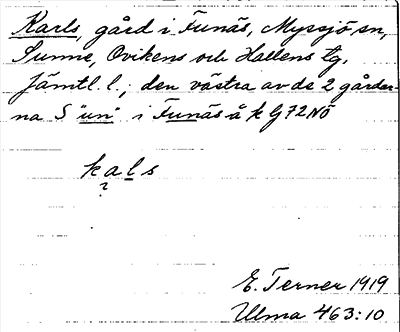 Karls, gård i Funäs, Myssjö sn,
Sunne, Ovikens och Hallens tg,
Jämtl. l.; den västra av de 2 gårdar-
na S "un" i Funäs å k G72NÖ
kals
E. Terner 1919
Ulma 463:10